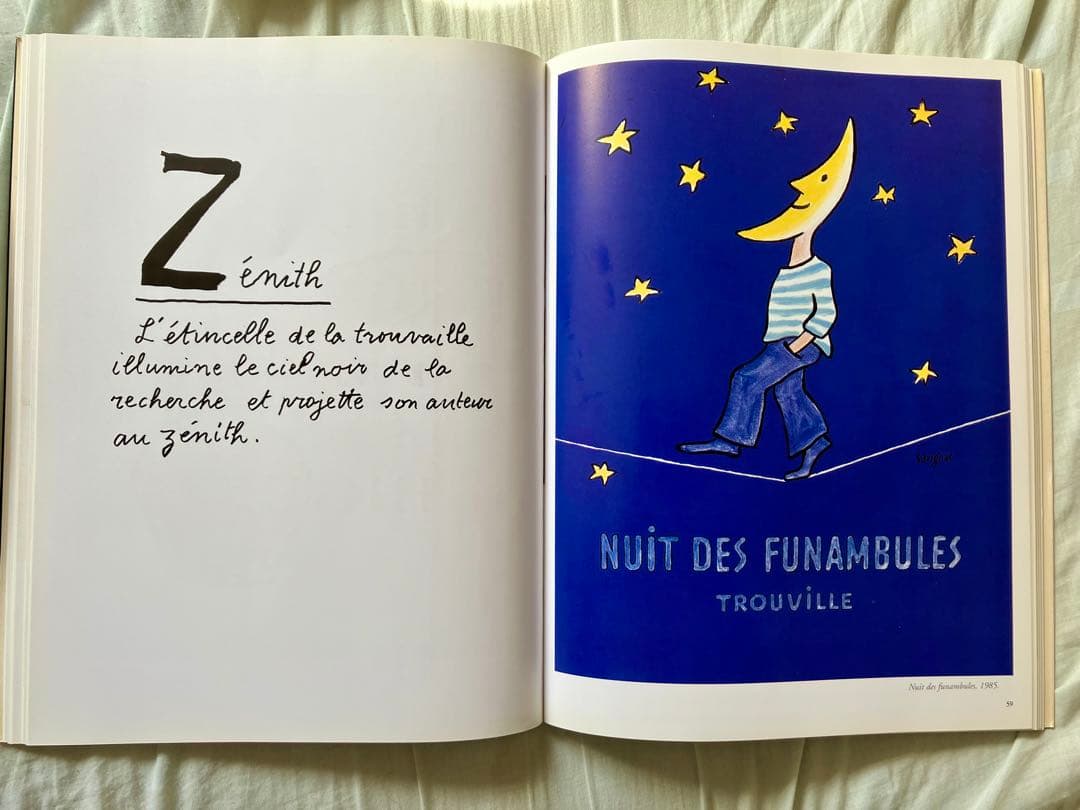 Zénith
L'étincelle de la trouvaille
illumine le ciel noir de la
recherche et projette son auteur
au zénith.
Savignac
NUiT DES FUNAMBULES
TROUViLLE
Nuit des funambules, 1985.
59